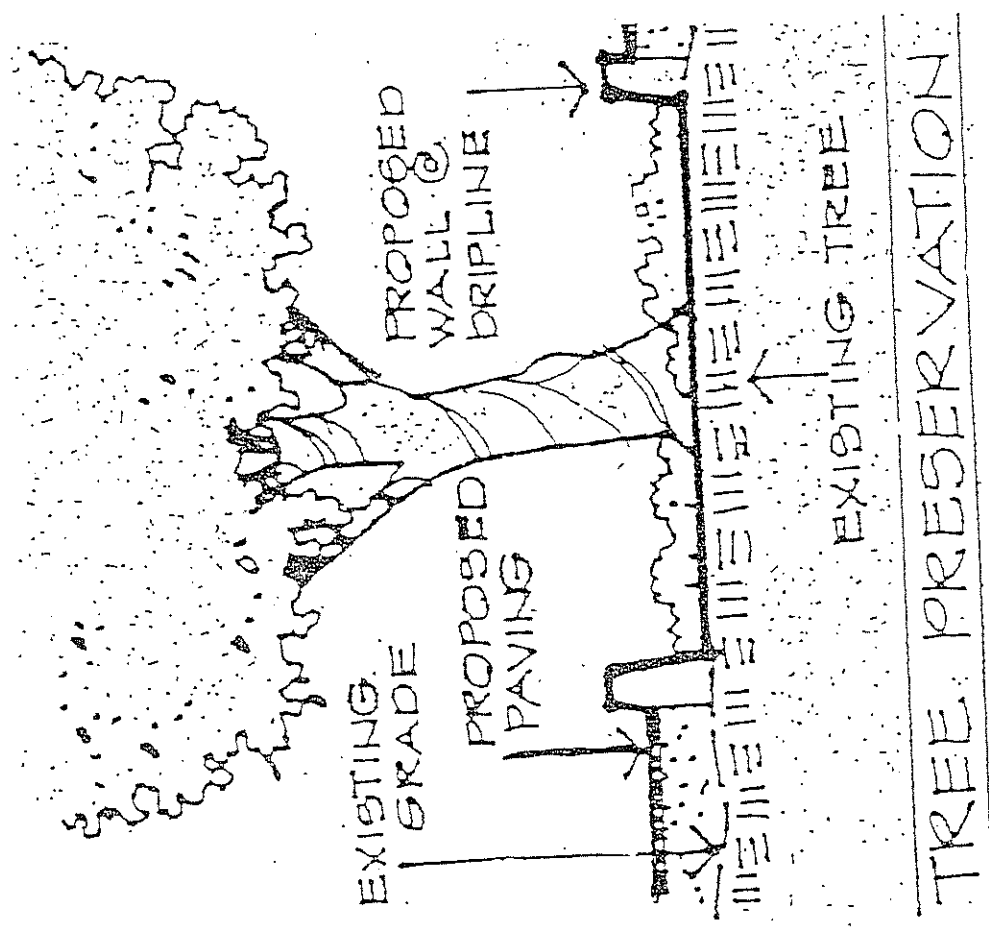 EXISTING
GRADE
PROPOSED
PAVING
PROPOSED
WALL @
DRIPLINE
EXISTING TREE
TREE PRESERVATION